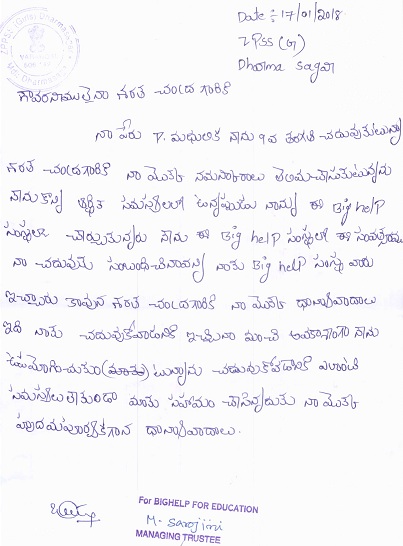 Date :- 17/01/2018
ZPSS (G)
Dharma Sagar
గౌరవనీయులైన శరత్ చంద్ర గారికి
నా పేరు P. మధులిక నేను 9వ తరగతి చదువుతున్నా
శరత్ చంద్రగారికి నా యొక్క నమస్కారాలు తెలియచేసుకుంటున్నాను
నేను కొన్ని ఆర్థిక సమస్యలలో ఉన్నప్పుడు నాన్ను ఈ Big help
సంస్థలో చేర్చుకున్నారు నేను ఈ Big help సంస్థలో ఈ సంవత్సరము
నా చదువుకు సంబంధించినవన్ని నాకు Big help సంస్థ వారు
ఇచ్చారు కావున శరత్ చంద్రగారికి నా యొక్క ధాన్యావాదాలు
ఇది నాకు చదువుకోవడానికి ఇచ్చిన మంచి అవకాశంగా నేను
ఉపయోగించుకుం టున్నాను చదువుకోవడానికి ఎలాంటి
సమస్యలు లేకుండా మాకు సహాయం చేసినందుకు నా యొక్క
హృదయపూర్వకంగాన ధాన్యావాదాలు.
For BIGHELP FOR EDUCATION
M. Sarojini
MANAGING TRUSTEE